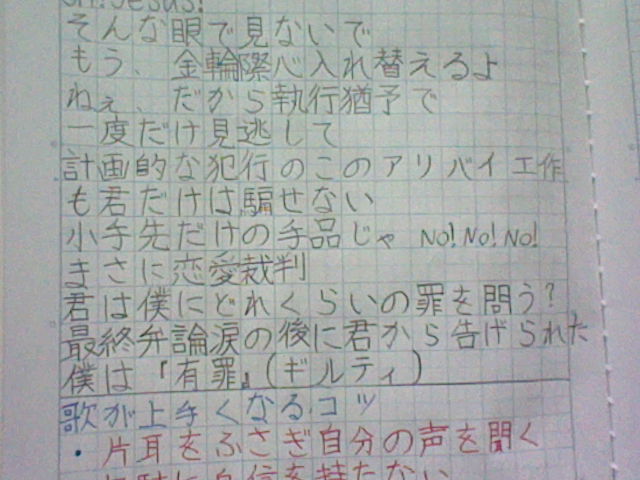 Oh! Jesus!
そんな眼で見ないで
もう、金輪際心入れ替えるよ
ねぇ、だから執行猶予で
一度だけ見逃して
計画的な犯行のこのアリバイ工作
も君だけは騙せない
小手先だけの手品じゃ NO! NO! NO!
まさに恋愛裁判
君は僕にどれくらいの罪を問う?
最終弁論涙の後に君から告げられた
僕は『有罪』(ギルティ)
歌が上手くなるコツ
・片耳をふさぎ自分の声を聞く
に自信を持たない